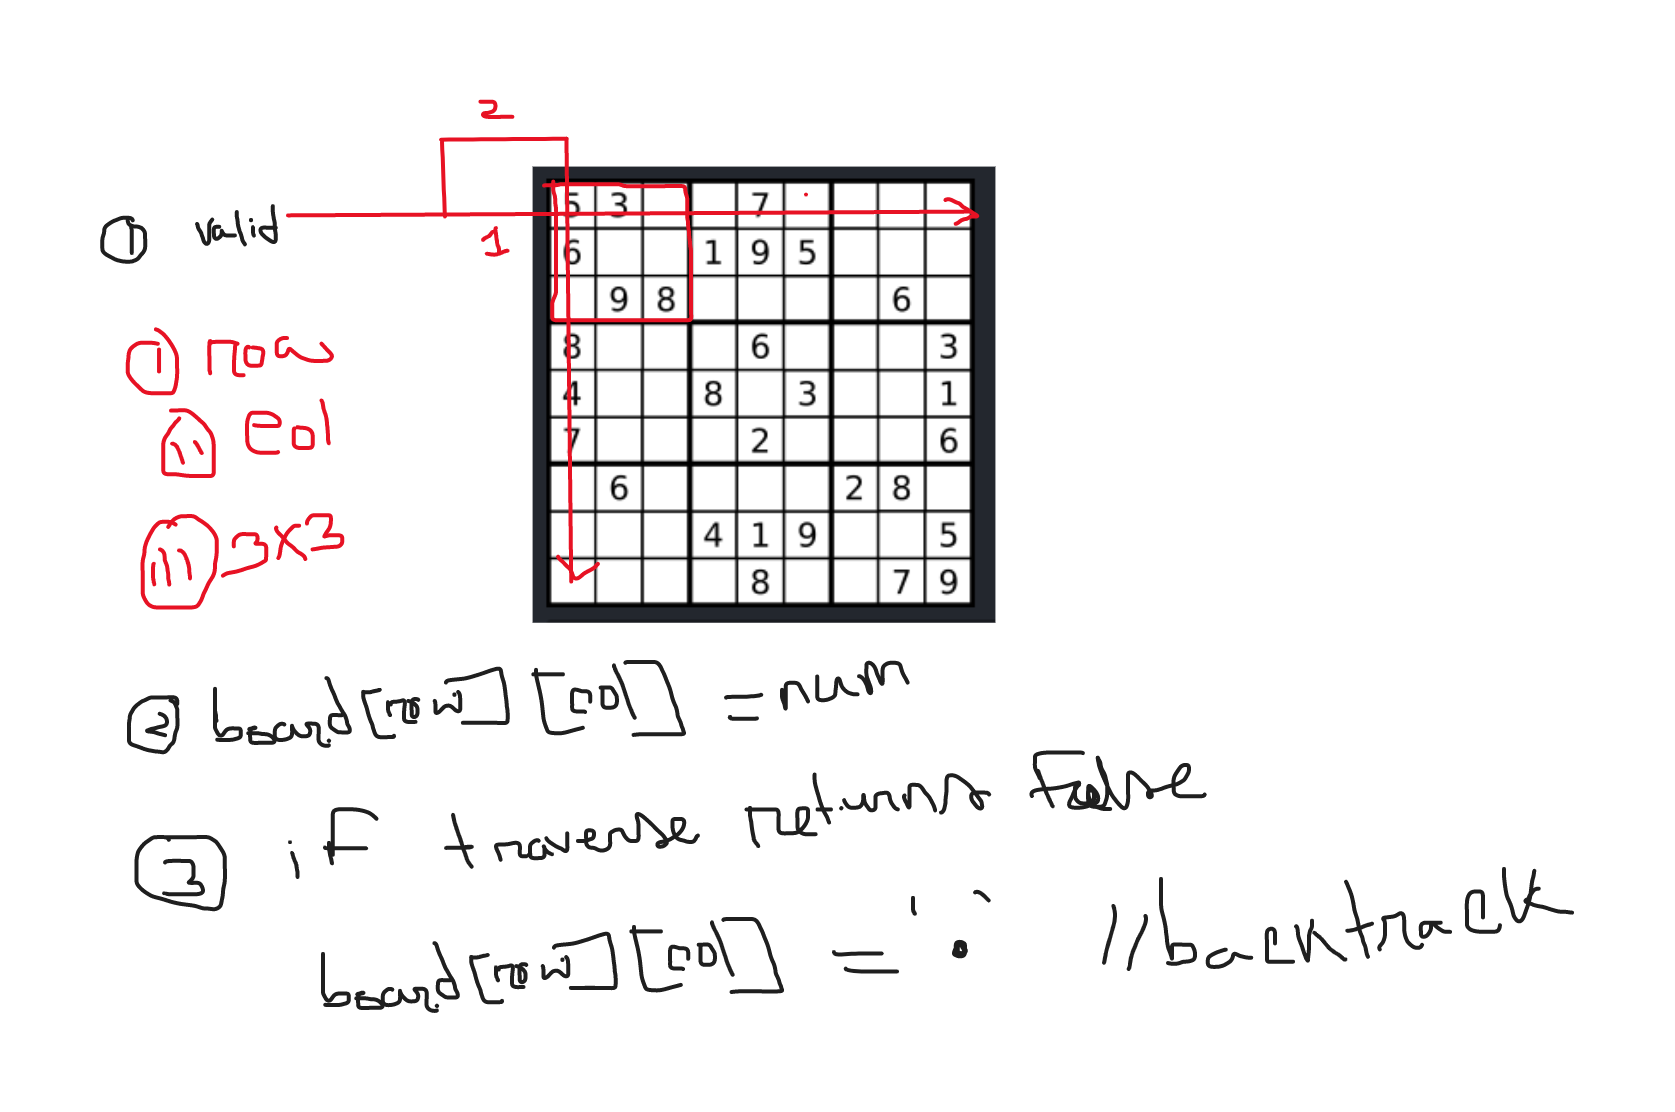 2
① valid
1
① row
② col
③ 3x3
5 3 7
6 1 9 5
9 8 6
8 6 3
4 8 3 1
7 2 6
6 2 8
4 1 9 5
8 7 9
② board[row][col] = num
③ if traverse returns False
board[row][col] = '.' //backtrack